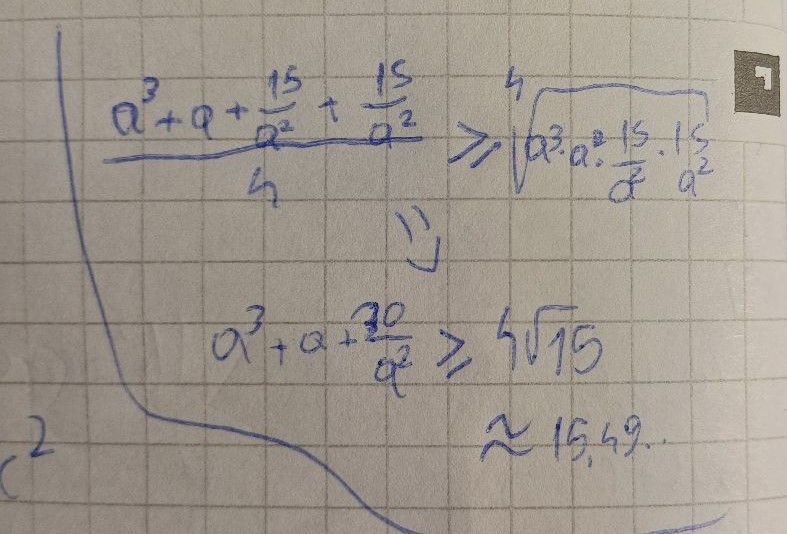 (a³ + a + 15/a² + 15/a²)/4 ≥ ⁴√(a³ · a · 15/a² · 15/a²)
⇒
a³ + a + 30/a² ≥ 4√15
≈ 15,49..
c²